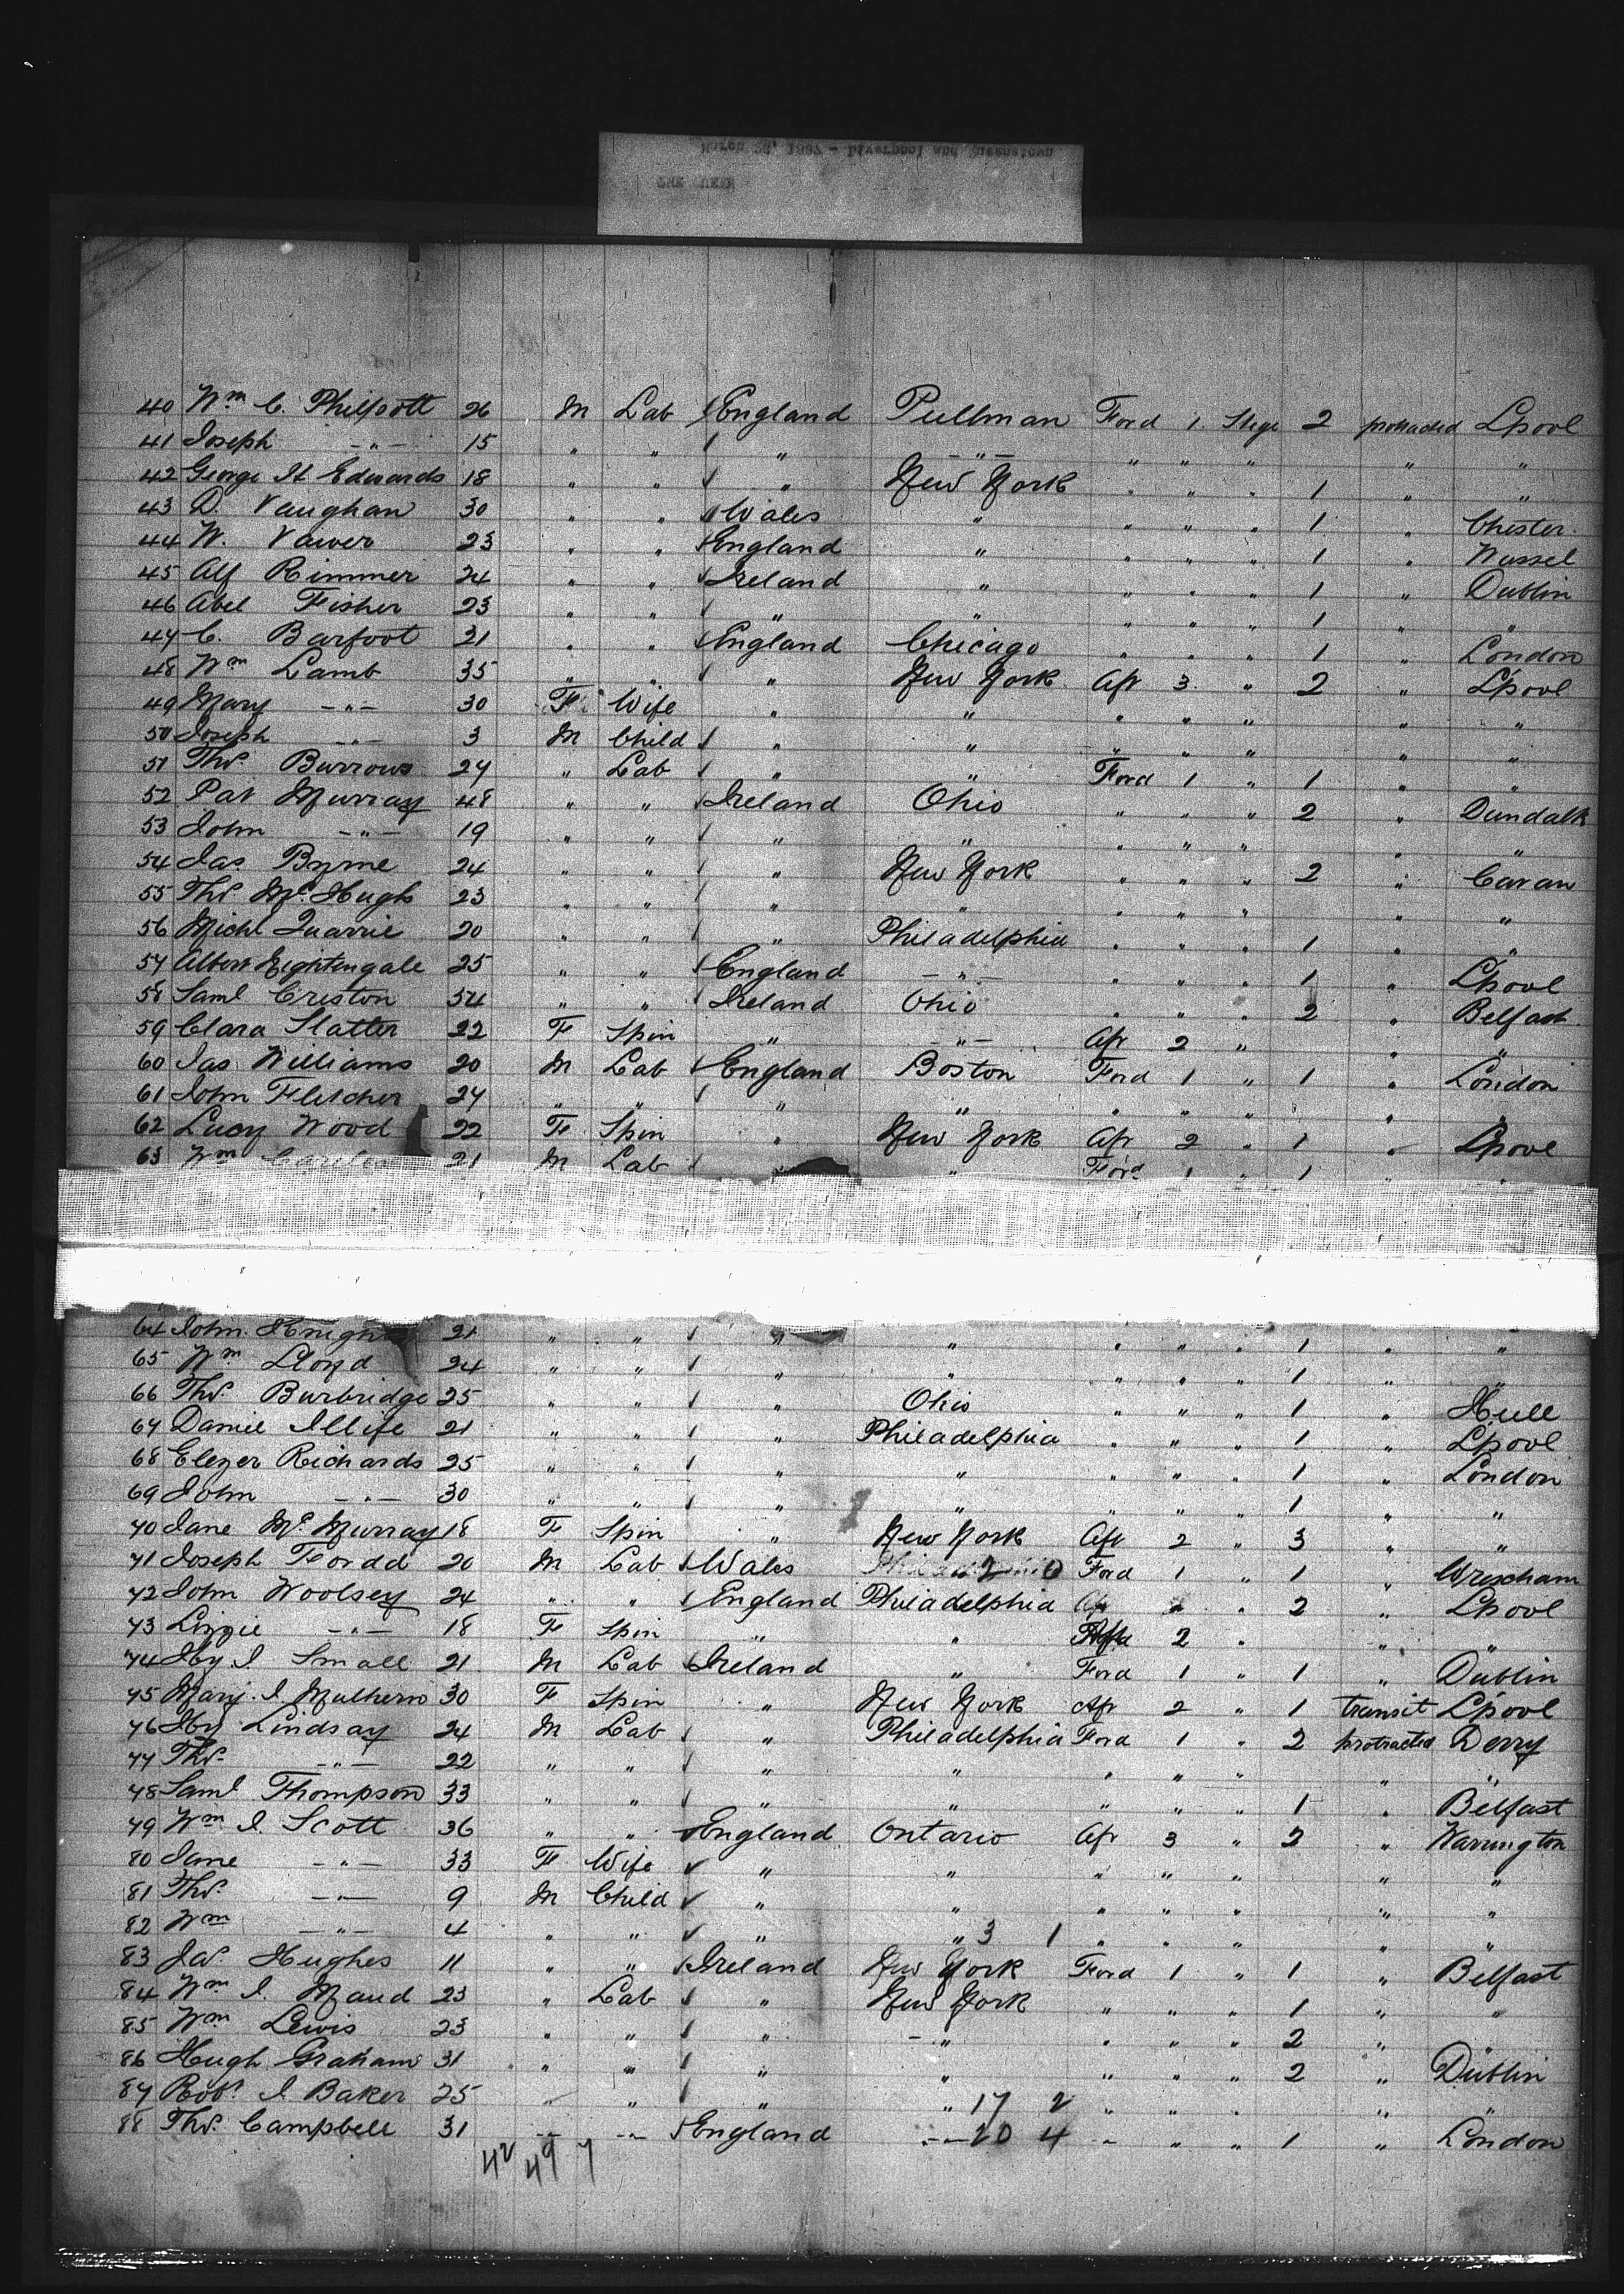 March 28, 1887 - Liverpool and Queenstown
THE QUEEN
40 Wm C. Philpott 26 M Lab England Pullman Ford 1 Stge 2 protracted Lpool
41 Joseph -"- 15 " " " -"- " " " " "
42 George H Edwards 18 " " " New York " " " 1 " "
43 D. Vaughan 30 " " Wales " " " " 1 " Chester
44 W. Vawer 23 " " England " " " " 1 " Wassel
45 Alf Rimmer 24 " " Ireland " " " " 1 " Dublin
46 Abel Fisher 23 " " " " " " " 1 " "
47 C. Barfoot 21 " " England Chicago " " " 1 " London
48 Wm Lamb 35 " " " New York Aft 3 " 2 " Lpool
49 Mary -"- 30 F Wife " " " " " " "
50 Joseph -"- 3 M Child " " " " " " "
51 Thos. Burrows 24 " Lab " " Ford 1 " 1 " "
52 Pat Murray 48 " " Ireland Ohio " " " 2 " Dundalk
53 John -"- 19 " " " " " " " " "
54 Jas. Byrne 24 " " " New York " " " 2 " Cavan
55 Thos McHugh 23 " " " " " " " " "
56 Michl Quarrie 20 " " " Philadelphia " " " 1 " "
57 Albert Nightengale 25 " " England -"- " " " 1 " Lpool
58 Saml Criston 54 " " Ireland Ohio " " " 2 " Belfast
59 Clara Slatter 22 F Spin " -"- Aft 2 " " "
60 Jas. Williams 20 M Lab England Boston Ford 1 " 1 " London
61 John Fletcher 24 " " " " " " " " "
62 Lucy Wood 22 F Spin " New York Aft 2 " 1 " Lpool
63 Wm 21 M Lab " " Ford 1 " 1 " "
64 John 21 " " " " " " " 1 " "
65 Wm Lloyd 24 " " " " " " " 1 " "
66 Thos. Burbridge 25 " " " Ohio " " " 1 " Hull
67 Daniel Illife 21 " " " Philadelphia " " " 1 " Lpool
68 Elezer Richards 25 " " " " " " " 1 " London
69 John -"- 30 " " " " " " " 1 " "
70 Jane McMurray 18 F Spin " New York Aft 2 " 3 " "
71 Joseph Fordd 20 M Lab Wales 2 0 Ford 1 " 1 " Wrexham
72 John Woolsey 24 " " England Philadelphia " 2 " Lpool
73 Lizzie -"- 18 F Spin " " 2 " " "
74 Hy. J. Small 21 M Lab Ireland " Ford 1 " 1 " Dublin
75 Mary J. Mulhern 30 F Spin " New York Aft 2 " 1 transit Lpool
76 Hy Lindsay 24 M Lab " Philadelphia Ford 1 " 2 protracted Derry
77 Thos. -"- 22 " " " " " " " " "
78 Saml Thompson 33 " " " " " " " 1 " Belfast
79 Wm J. Scott 36 " " England Ontario Aft 3 " 2 " Warrington
80 Jane -"- 33 F Wife " " " " " " "
81 Thos. -"- 9 M Child " " " " " " "
82 Wm -"- 4 " " " " 3 1 " " " " "
83 Jas. Hughes 11 " " Ireland New York Ford 1 " 1 " Belfast
84 Wm J. Maud 23 " Lab " New York " " " 1 " "
85 Wm Lewis 23 " " " -"- " " " 2 "
86 Hugh Graham 31 " " " " " " " 2 " Dublin
87 Robt. J. Baker 25 " " " " 17 2 " " " " "
88 Thos. Campbell 31 -"- -"- England -"- 20 4 " " " 1 " London
42 49 7